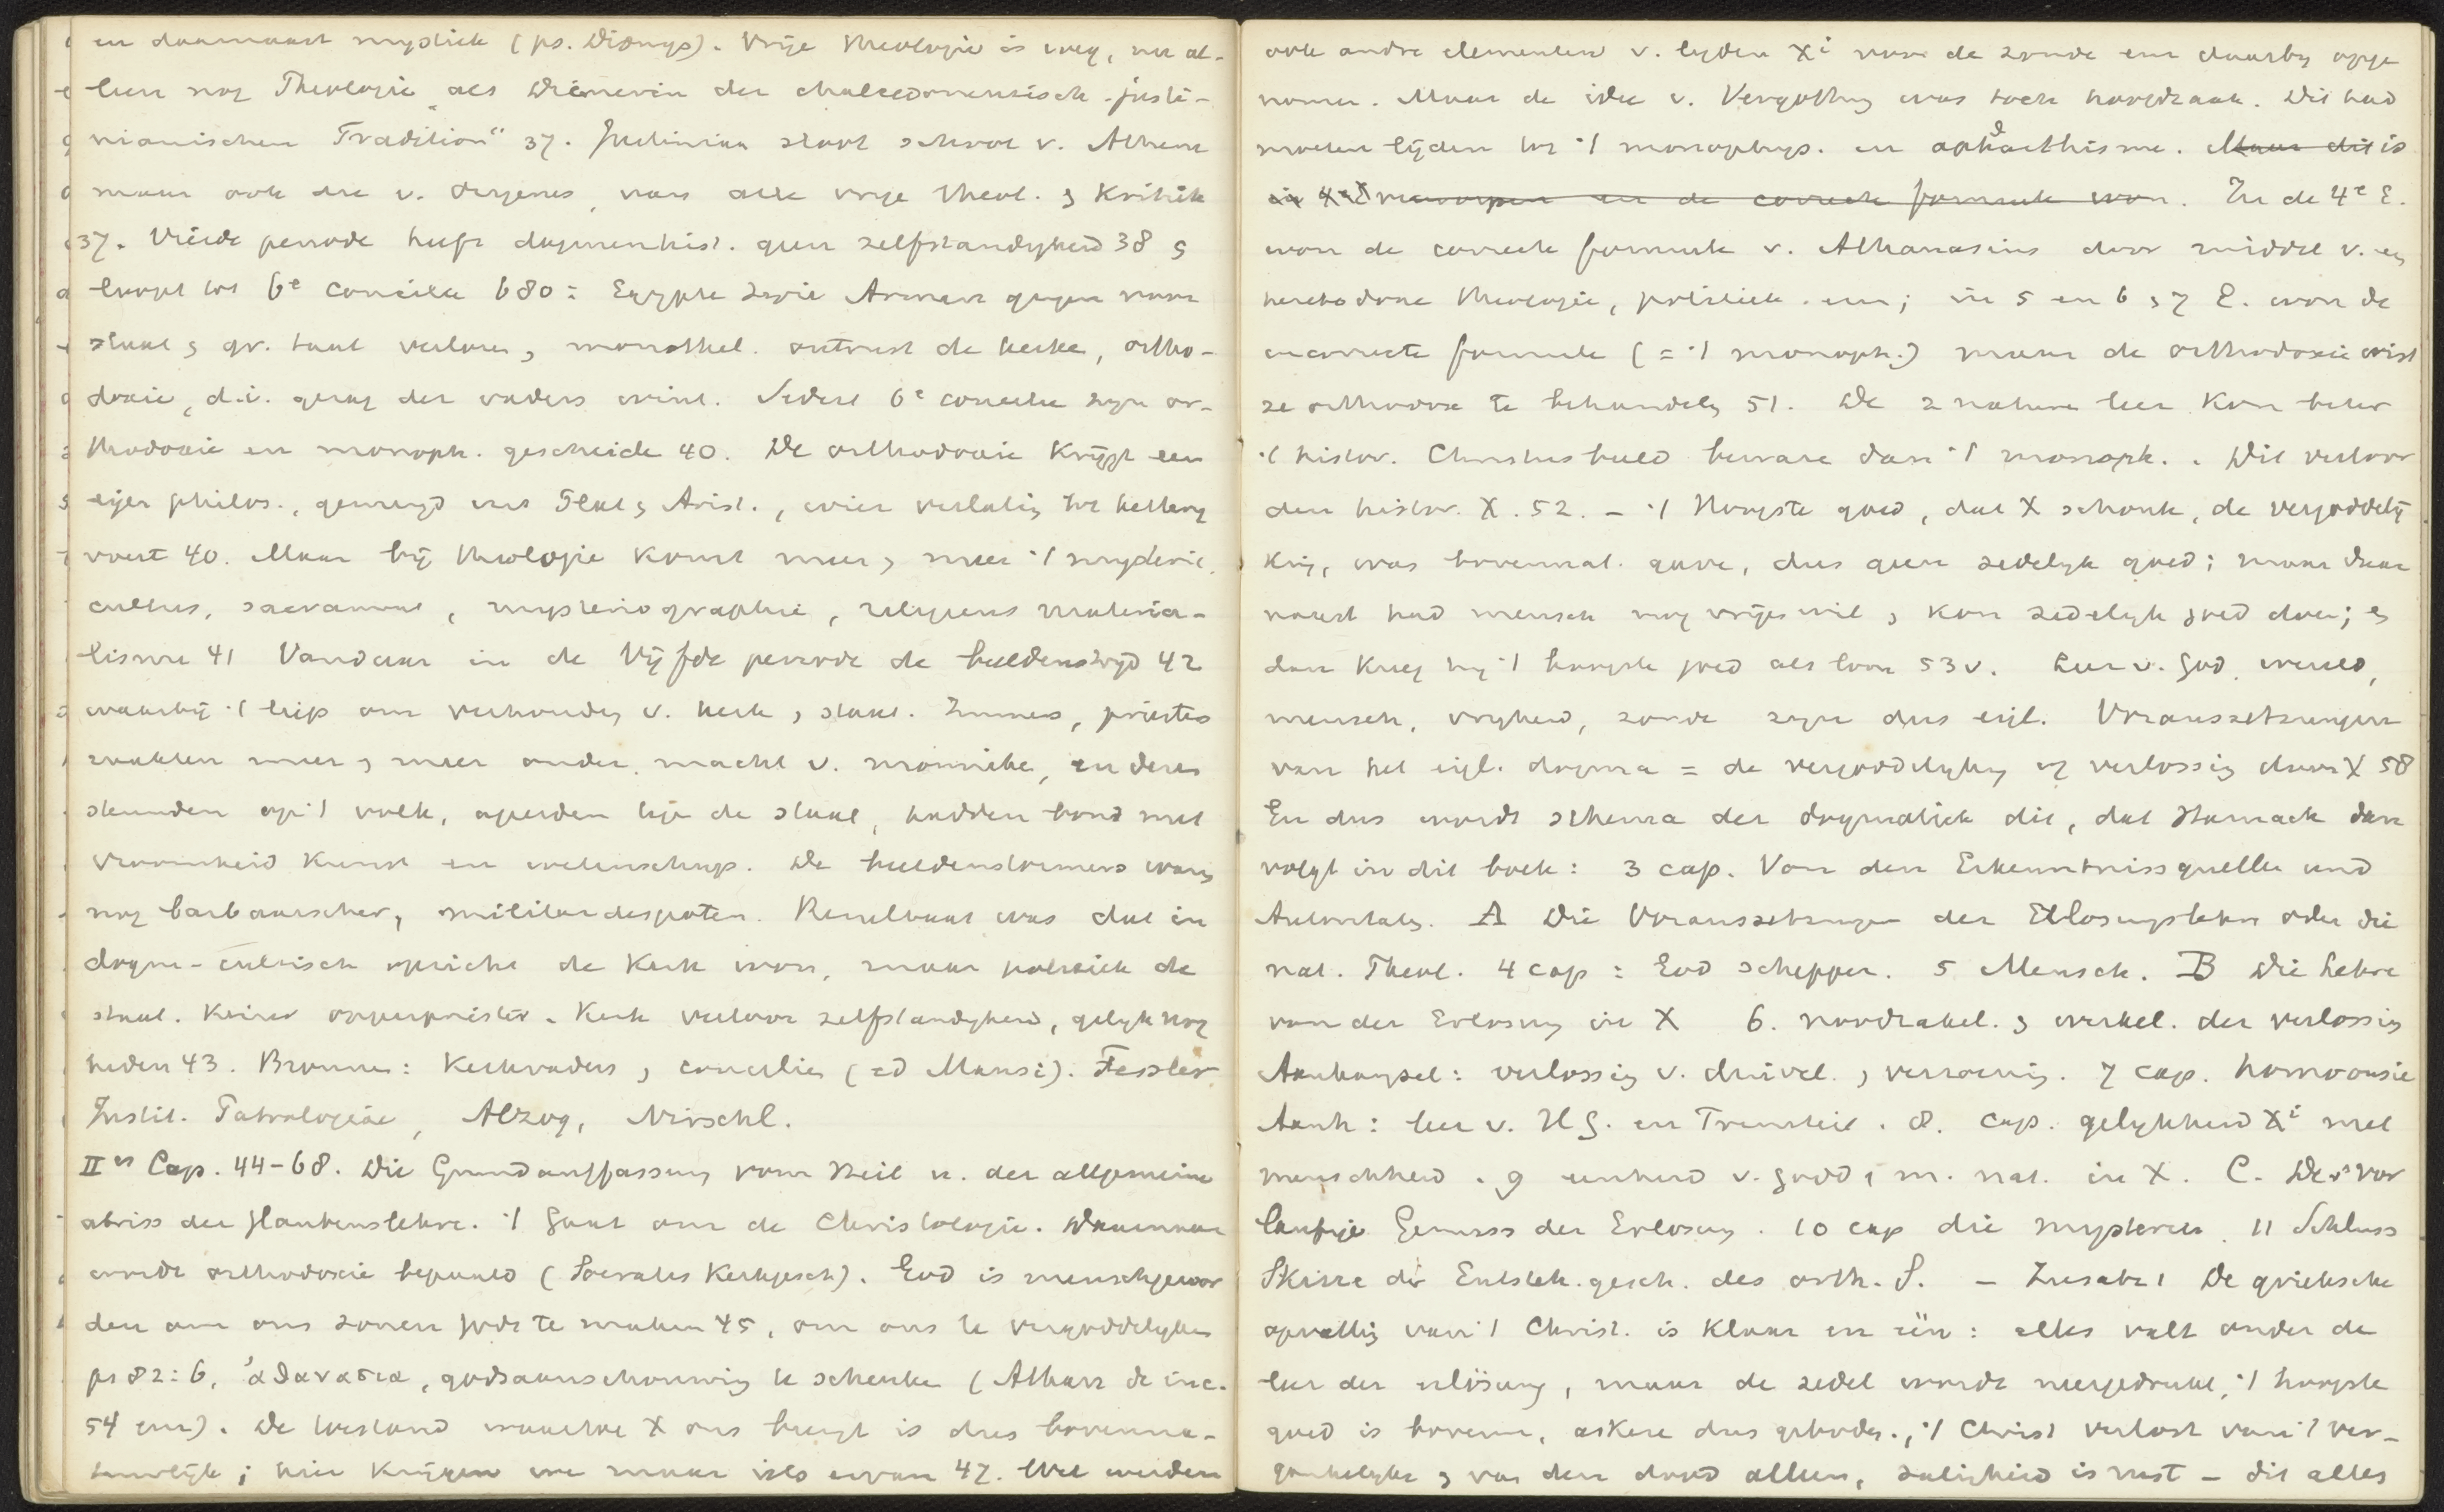 en daarnaast mystiek (ps. Dionys). Vrije theologie is weg, nu al-
leen nog Theologie „als Dienerin der chalcedonensisch-justi-
nianischen Tradition" 37. Justinian sloot school v. Athene
maar ook die v. Origenes, van alle vrije theol. & kritiek
37. Vierde periode heeft dogmenhist. geen zelfstandigheid 38 &
loopt tot 6e concilie 680: Egypte Syrie Armen gegen
staat & gr. taal verloren, monothel. ontrust de kerke, ortho-
doxie, d.i. gezag der vaders wint. Sedert 6e concilie zijn or-
thodoxie en monoph. gescheide 40. De orthodoxie krijgt een
eigen philos., gemengd uit Plat & Arist., wier verlating tot kettery
voert 40. Maar bij theologie komt meer & meer 't mysterie,
cultus, sacrament, mysteriographie, religieus materia-
lisme 41 Vandaar in de Vijfde periode de beeldenstrijd 42
waarbij 't liep om verhouding v. kerk & staat. Immers, priesters
raakten meer & meer onder macht v. monniken, en dezen
steunden op 't volk, ageerden tege de staat, hadden bond met
vroomheid kunst en wetenschap. De beeldenstormers waren
nog barbaarscher, militairdespoten. Resultaat was dat in
dogm-cultisch opzicht de Kerk won, maar politiek de
staat. Keizer opperpriester. Kerk verloor zelfstandigheid, gelijk nog
heden 43. Bronnen: Kerkvaders, conciliën (ed Mansi). Fessler
Instit. Patrologiae, Alzog, Nirschl.
IIes Cap. 44-68. Die Grundauffassung vom Heil u. der allgemeine
abriss der Glaubenslehre. 't Gaat om de Christologie. Daarnaar
wordt orthodoxie bepaald (Socrates Kerkgesch). God is menschgewor
den om ons zonen gods te maken 45, om ons te vergoddelijken
ps 82:6, ἀθανασια, godsaanschouwing te schenke (Athan de inc.
54 enz). De toestand waartoe X ons brengt is dus bovenna-
tuurlijk; hier krijgen we maar iets ervan 47. Wel werden
ook andre elementen v. lijden Xi voor de zonde enz daarby opge
nomen. Maar de idee v. Vergotting was toch hoofdzaak. Dit had
moeten lijden tot 't monophys. en aphthartisme. Maar dit is
in 4e E verworpen en de correcte formule won. In de 4e E.
won de correcte formule v. Athanasius door middel v. een
heterodoxe theologie, politiek enz; in 5 en 6 & 7 E. won de
incorrecte formule (= 't monoph.) maar de orthodoxie wist
ze orthodox te behandelen 51. De 2 naturen leer kon beter
't histor. Christusbeeld beware dan 't monoph.. Dit verloor
den histor. X. 52. – 't Hoogste goed, dat X schonk, de vergoddelij
king, was bovennat. gave, dus geen zedelijk goed; maar daar
naast had mensch nog vrijen wil & kon zedelijk goed doen; en
dan kreeg hij 't hoogste goed als loon 53v. Leer v. God, wereld,
mensch, vrijheid, zonde zijn dus eigl. Voraussetzungen
van het eigl. dogma = de vergoddelijking of verlossing door X 58
En dus wordt schema der dogmatiek dit, dat Harnack dan
volgt in dit boek: 3 cap. Von den Erkenntnissquellen und
Autoritaten. A Die Voraussetzungen der Erlosungslehre oder die
nat. Theol. 4 cap: God schepper. 5 Mensch. B Die Lehre
von der Erlosung in X 6. noodzakel. & werkel. der verlossing
Aanhangsel: verlossing v. duivel. & verzoening. 7 cap. homoousie
Aanh: leer v. H G. en Triniteit. 8. cap. gelijkheid Xi met
menschheid. 9 eenheid v. godd & m. nat. in X. C. Der vor
laufige Genuss der Erlosung. 10 cap die mysterien. 11 Schluss
Skizze der Entsteh.gesch. des orth. S. – Zusatz 1 De grieksche
opvatting van 't Christ. is klaar en één: alles valt onder de
leer der erlösung, maar de zedel wordt neergedrukt, 't hoogste
goed is bovenn, askese dus geboden., 't Christ verlost van 't ver-
gankelijke & van den dood alleen, zaligheid is rust – dit alles